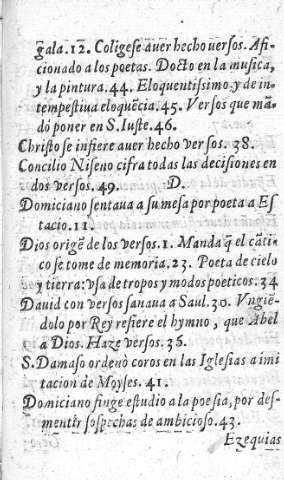 gala.12. Coligese auer hecho uersos. Afi-
cionado a los poetas. Docto en la musica,
y la pintura.44. Eloquentissimo, y de in-
tempestiua eloquēcia.45. Versos que mā-
dò poner en S. Iuste.46.
Christo se infiere auer hecho versos. 38.
Concilio Niseno cifra todas las decisiones en
dos versos. 49. D.
Domiciano sentaua a su mesa por poeta a Es
tacio.11.
Dios origē de los versos.1. Manda q̄ el cāti-
co se tome de memoria.23. Poeta de cielo
y tierra: vsa de tropos y modos poeticos.34
Dauid con versos sanaua a Saul.30. Vngiē-
dolo por Rey refiere el hymno, que Abel
a Dios. Haze versos.36.
S. Damaso ordenò coros en las Iglesias a imi
tacion de Moyses. 41.
Domiciano finge estudio a la poesia, por des-
mentir sospechas de ambicioso.43.
Ezequias